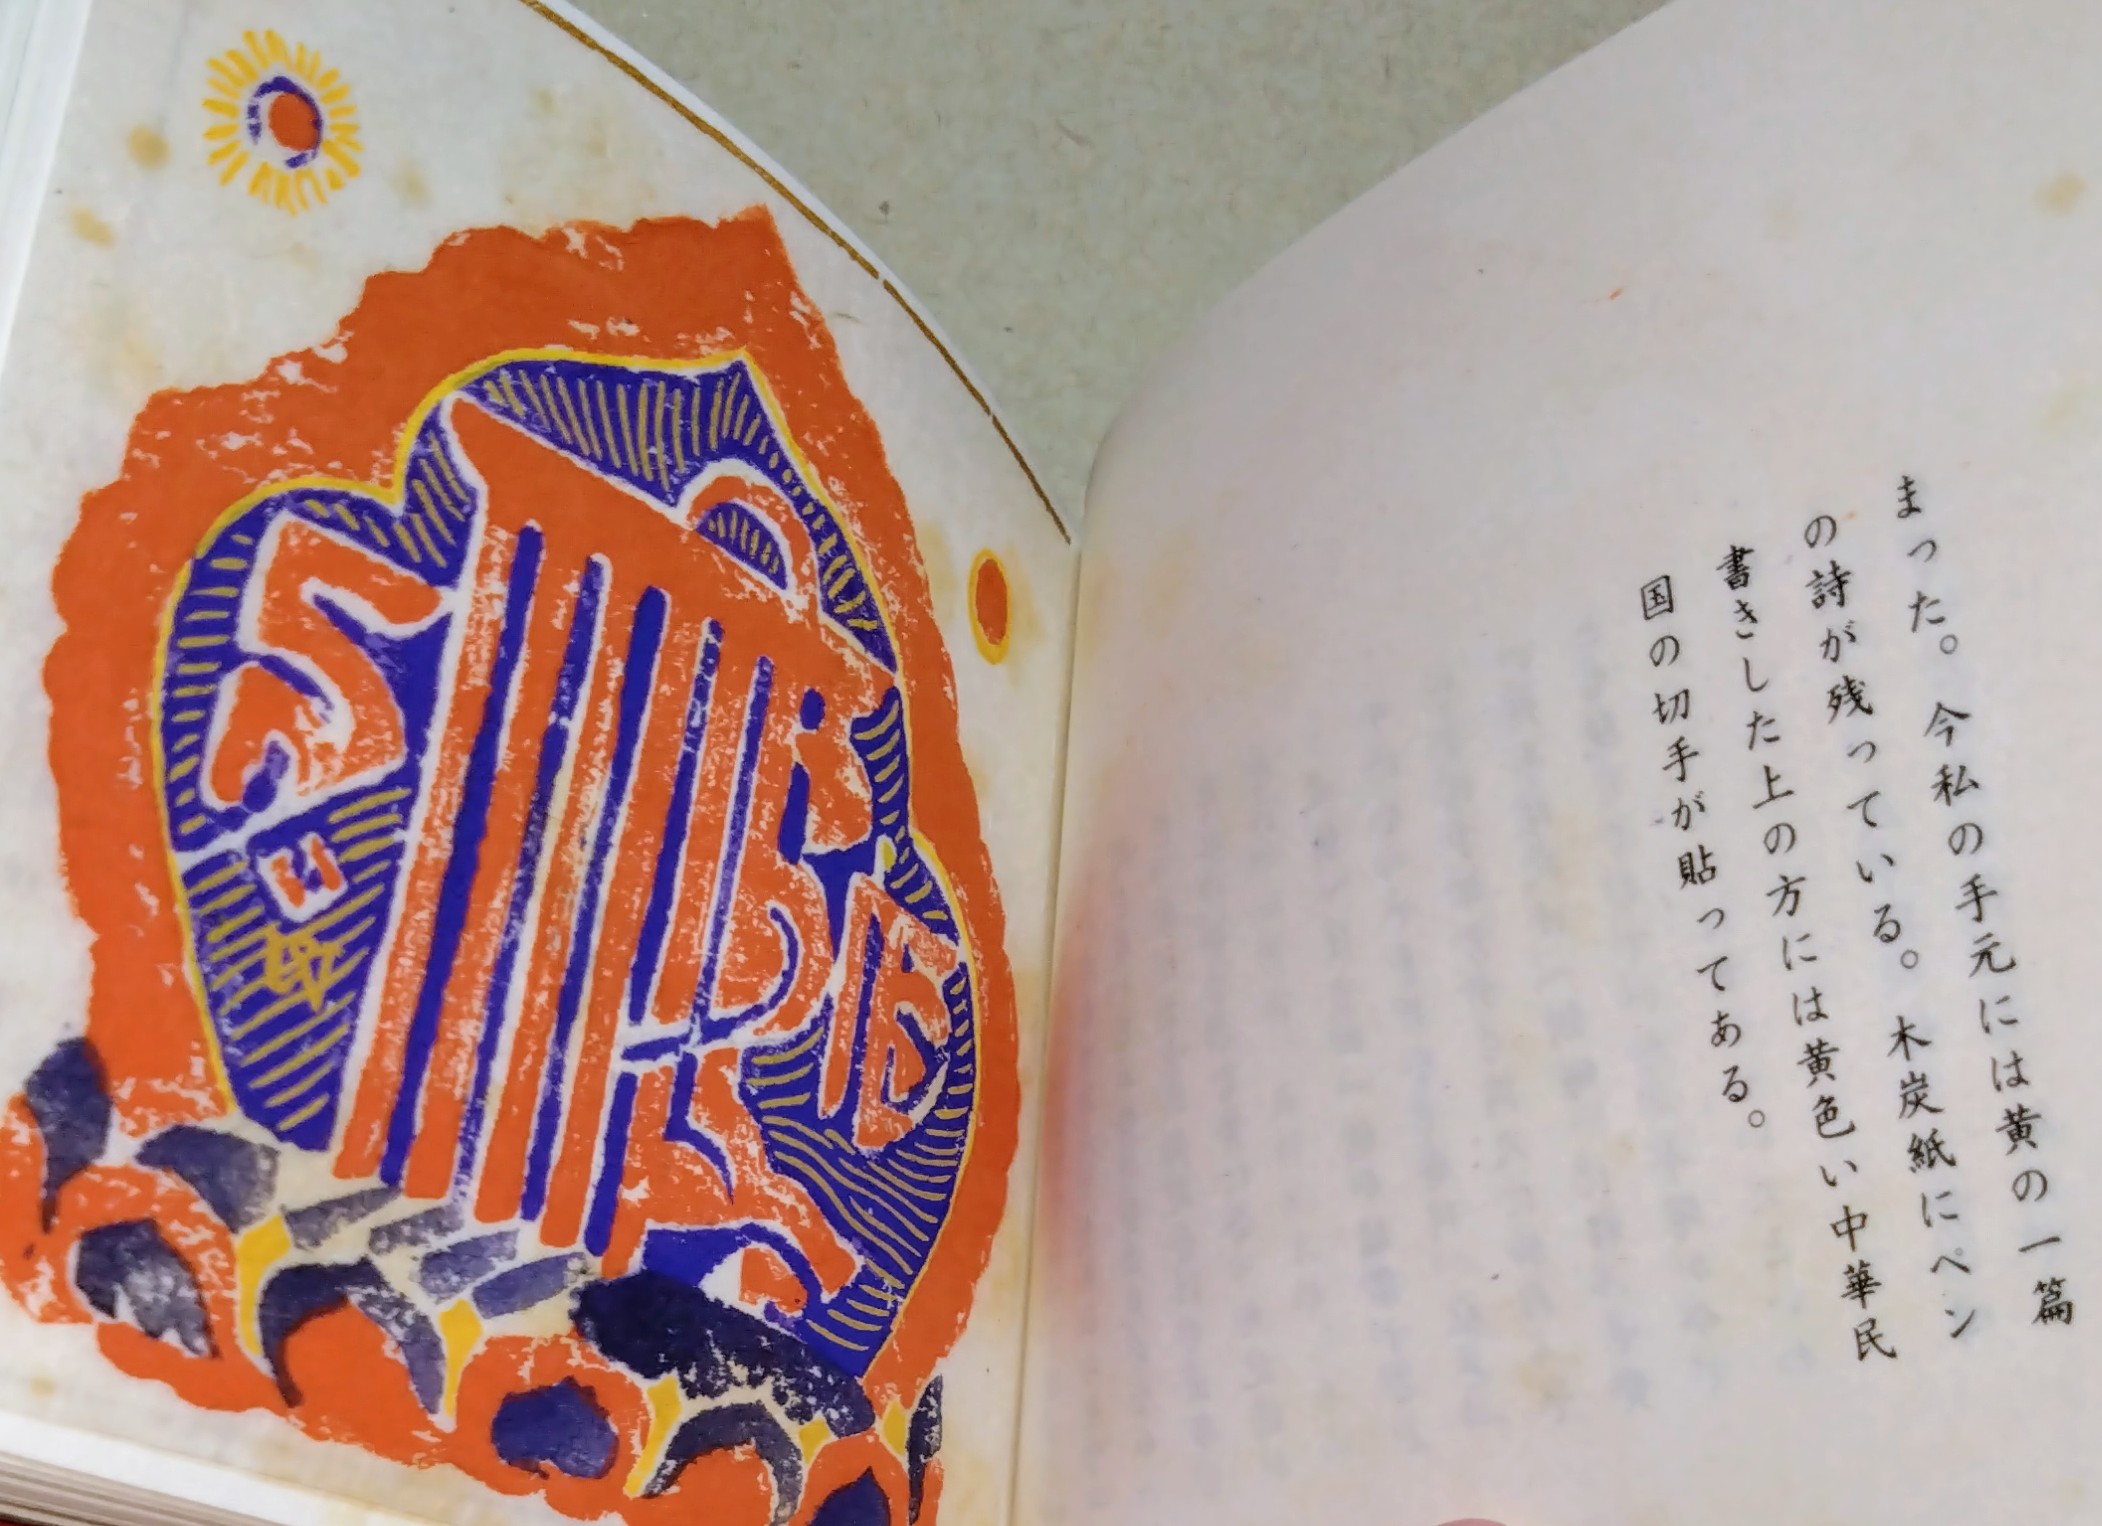 まった。今私の手元には黄の一篇
の詩が残っている。木炭紙にペン
書きした上の方には黄色い中華民
国の切手が貼ってある。